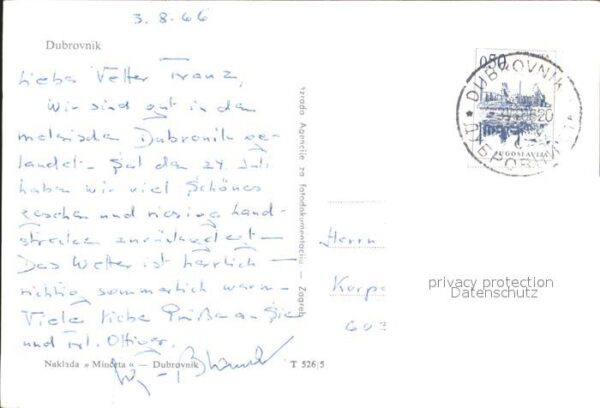 3.8.66
Dubrovnik
Lieber Vetter Franz,
Wir sind gut in dem
malerischen Dubrovnik ge-
landet. Seit dem 24. Juli
haben wir viel Schönes
gesehen und riesige Land-
strecken zurückgelegt —
Das Wetter ist herrlich —
richtig sommerlich warm —
Viele liebe Grüße an Sie
und Frl.
Naklada » Minčeta « — Dubrovnik
T 526/5
Izrada Agencije za fotodokumentaciju — Zagreb
0,50
JUGOSLAVIJA
DUBROVNIK
ДУБРОВНИК
Herrn
603
privacy protection
Datenschutz